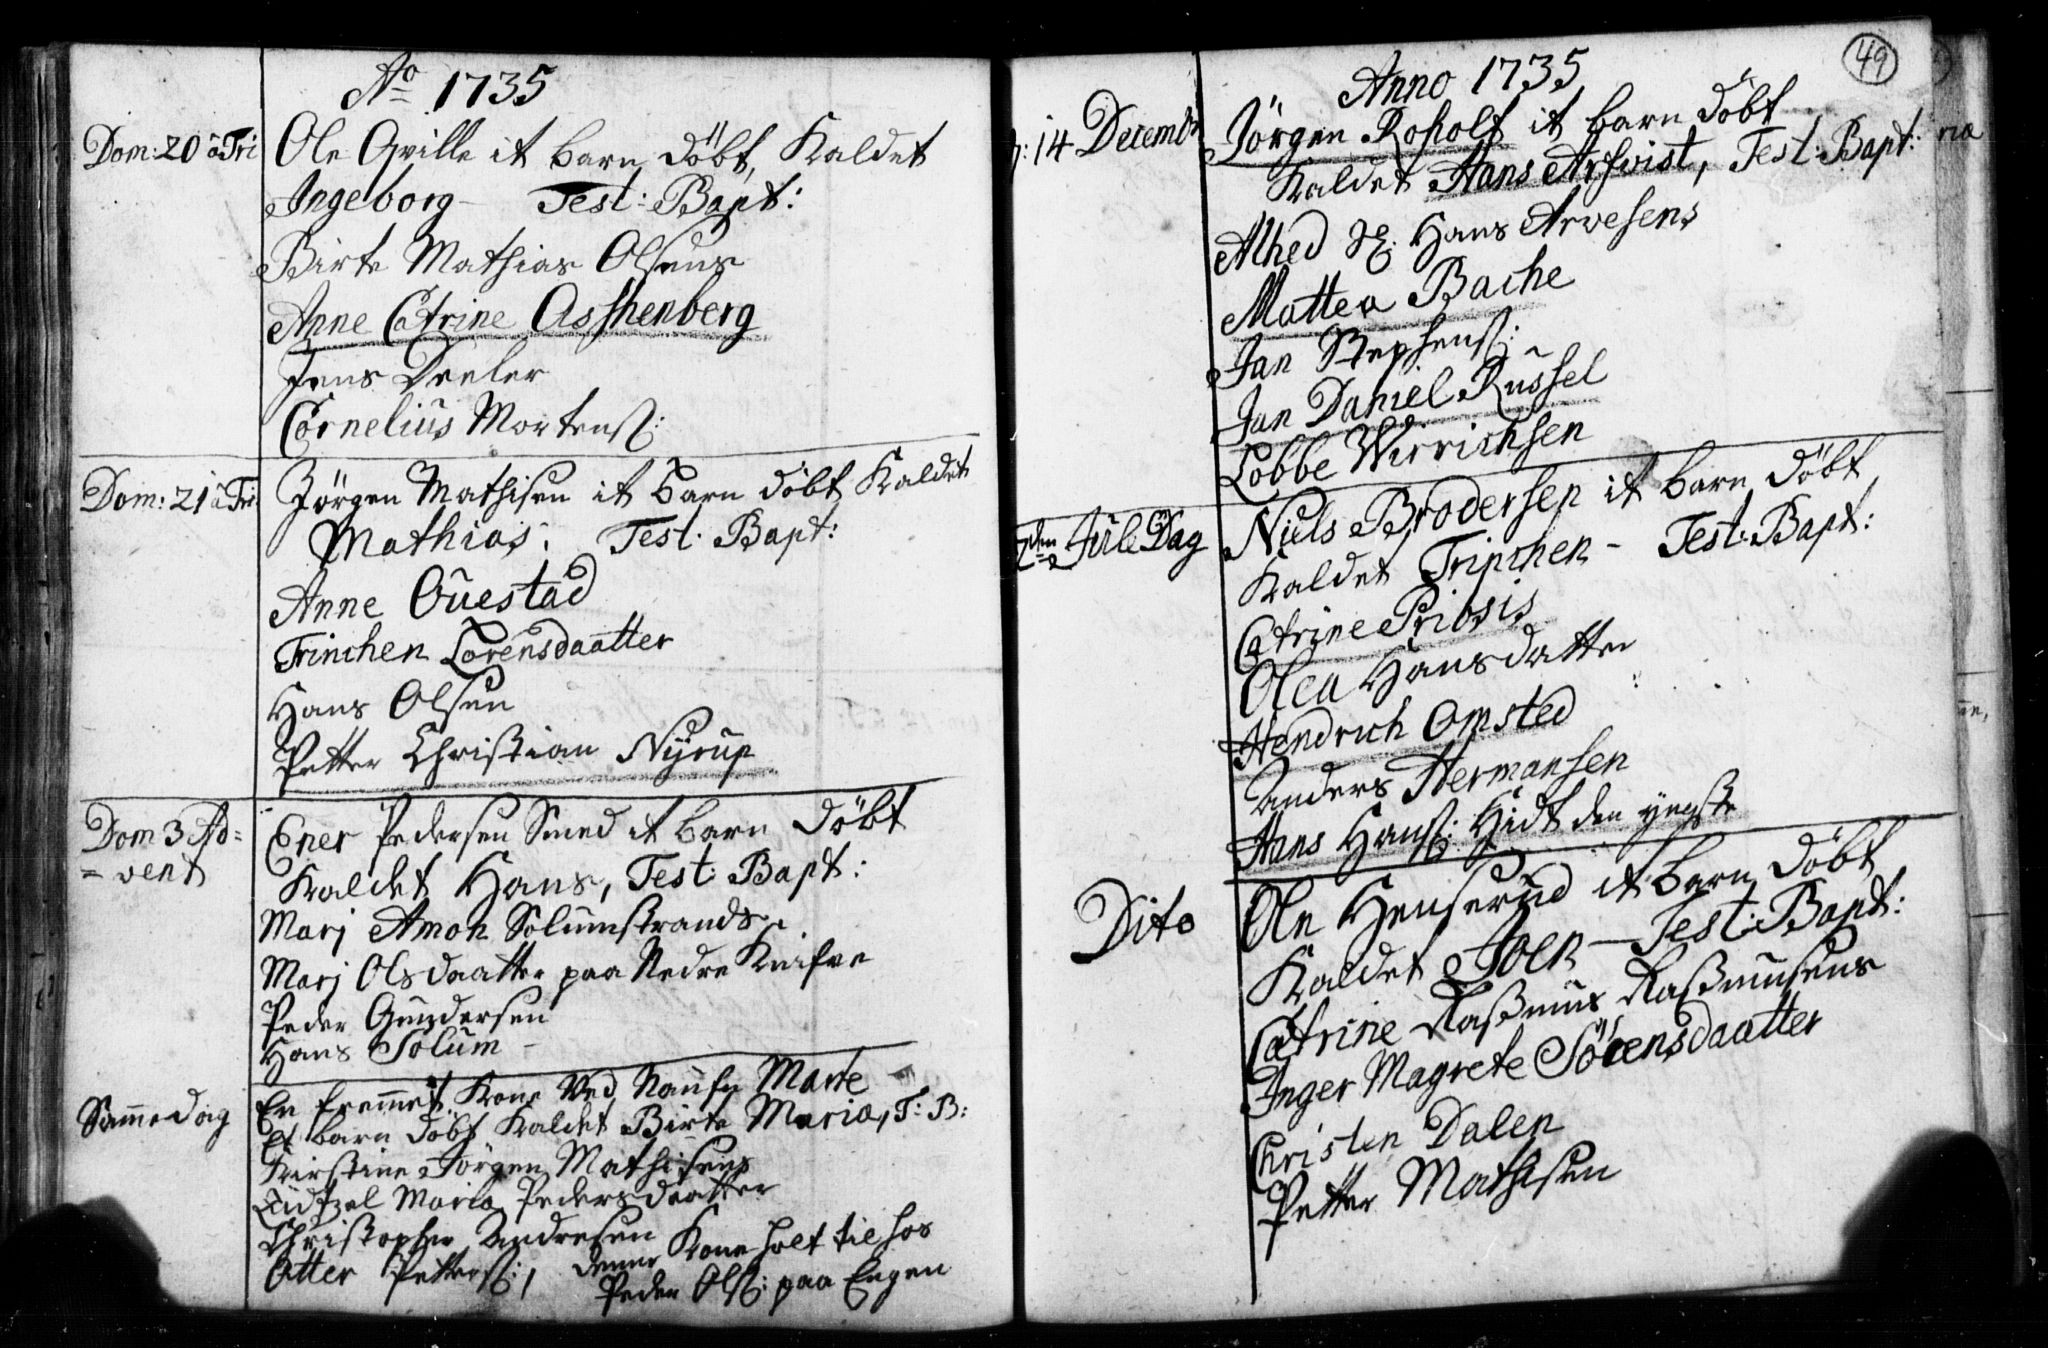 Ao 1735
Dom: 20 a Tri
Ole Qville it barn döbt, Kaldet
Ingeborg - Test: Bapt:
Birte Mathias Olsens
Anne Catrine Asshenberg
Jens Deeler
Cornelius Mortens:
Dom: 21 a Tri
Jörgen Mathisen it barn döbt Kaldet
Mathias: Test: Bapt:
Anne Ouestad
Trinchen Lorensdaatter
Hans Olsen
Petter Christian Nyrup
Dom 3 Ad=
=vent
Ener Pedersen Smed it barn döbt
Kaldet Hans, Test: Bapt:
Marj Amon Solumstrands
Marj Olsdaatter paa Nedre
Peder Gundersen
Hans Solum -
Samme dag
En fremmet Kone Ved Nafn Marte
Et barn döbt Kaldet Birte Maria, T: B:
Kirstine Jörgen Mathisens
Maria Pedersdaatter
Christopher Andresen
Otter Petters:, denne Kone holt til hos
Peder Ols: paa Engen
49
Anno 1735
14 Decembr
Jörgen Roholt it barn döbt
Kaldet Hans Arfvist, Test: Bapt:
Alhed Sl. Hans Arvesens
Mattea Bache
Jan Stephens:
Jan Daniel Russel
Lobbe Wirrichsen
2den Jule Dag
Niels Brodersen it barn döbt
Kaldet Trinchen - Test: Bapt:
Catrine Pribsis
Olea Hansdatter
Hendrich Omsted
Anders Hermansen
Hans Hans: Hidt den yngste
Dito
Ole Henserud it barn döbt
Kaldet Joen - Test: Bapt:
Catrine Rasmus Rasmusens
Inger Magrete Sörensdaatter
Christen Dalen
Petter Mathisen